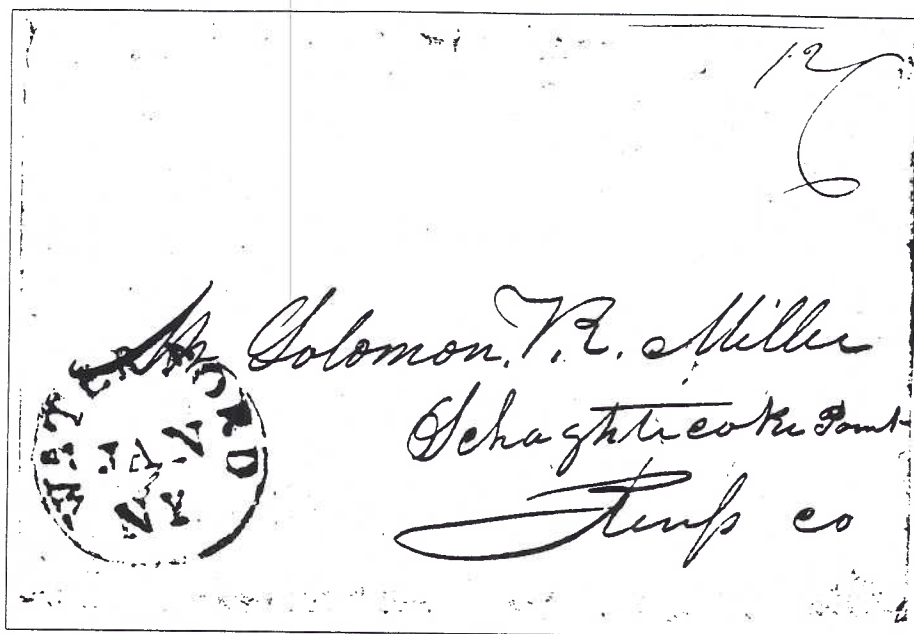 12
Mr Solomon. V. R. Miller
Schaghticoke Point
Renss co
WATERFORD
JAN
NY